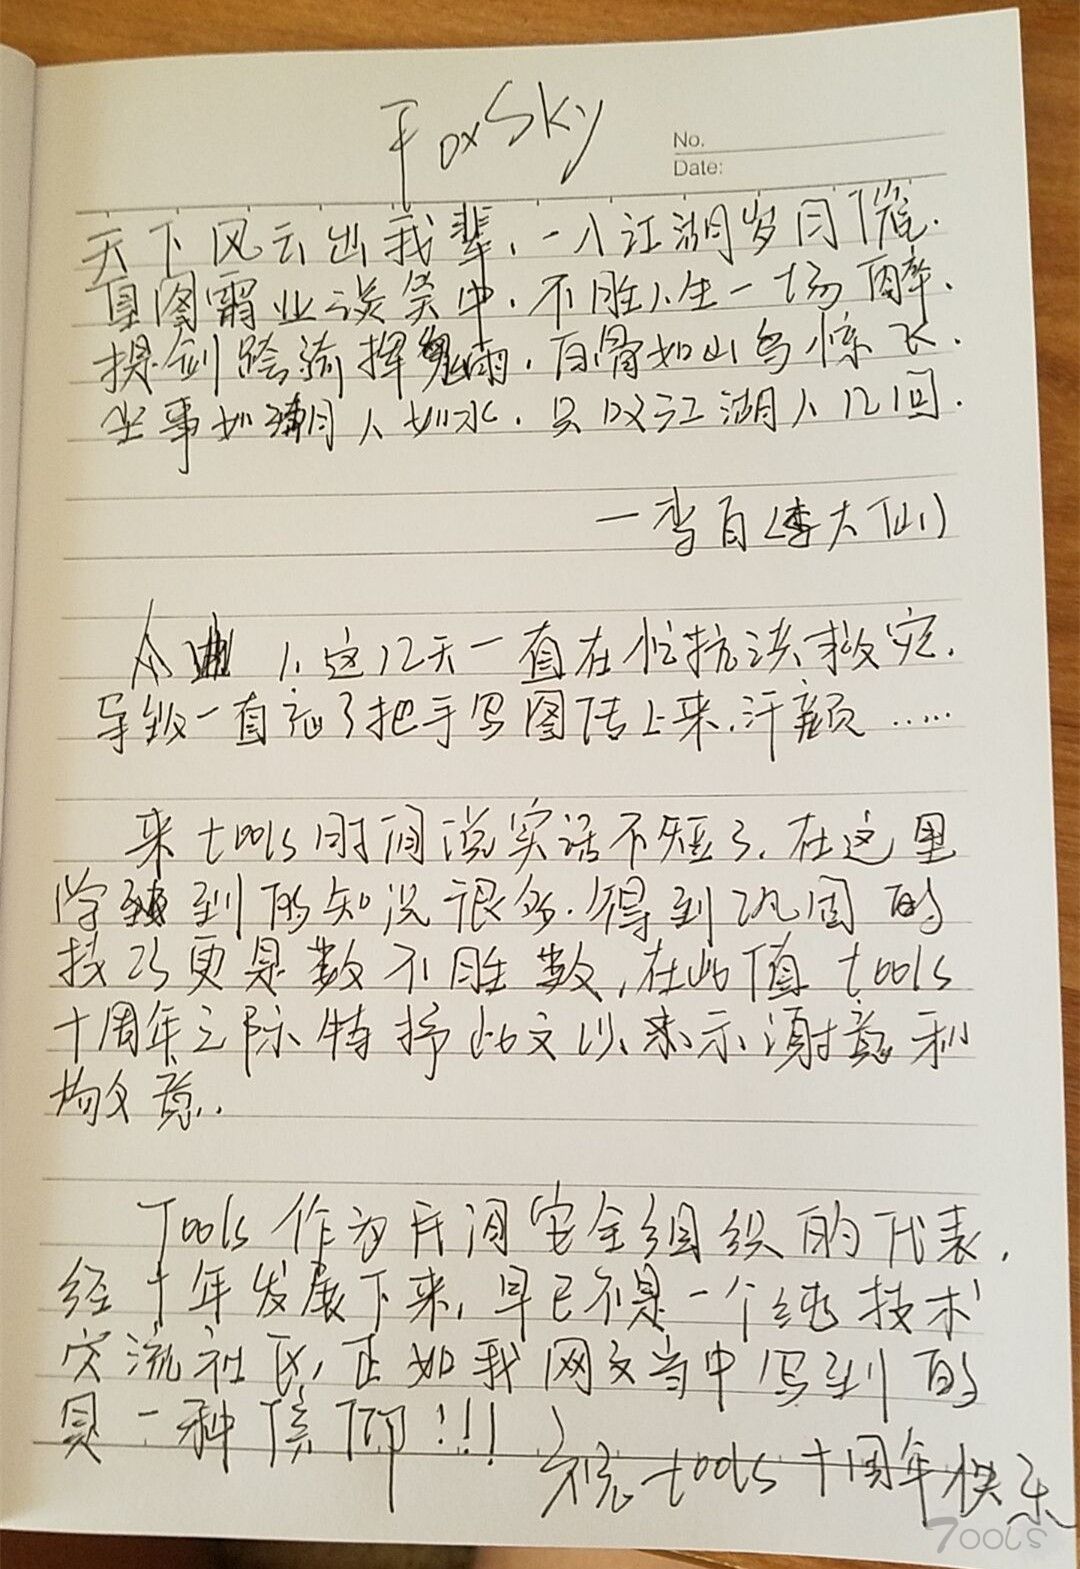 FoxSky
No.
Date:
天下风云出我辈,一入江湖岁月催.
皇图霸业谈笑中.不胜人生一场醉.
提剑跨骑挥鬼雨,白骨如山鸟惊飞.
尘事如潮人如水.只叹江湖人几回.
—李白(李大仙)
人.这几天一直在忙抗洪救灾.
导致一直忘了把手写图传上来.汗颜……
来tools时间说实话不短了.在这里
学到的知识很多.得到巩固的
技巧更是数不胜数,在此值tools
十周年之际特抒此文以来示谢意和
敬意..
Tools作为民间安全组织的代表,
经十年发展下来,早已不是一个纯技术
交流社区,正如我网文当中写到的
是一种信仰!!!
祝tools十周年快乐
Tools